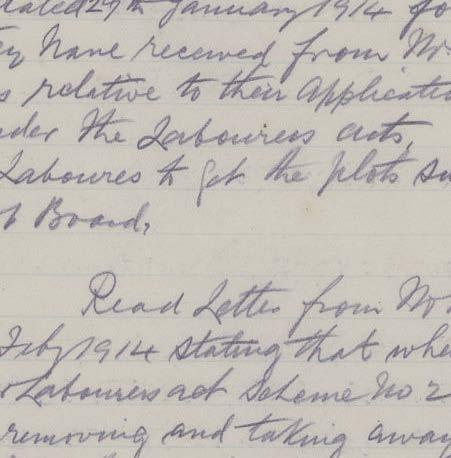 dated 29th January 1914 fo
ey have received from Mr
s relative to their Applicatio
nder the Labourers acts,
Laboures to get the plots su
t Board,
Read Letter from Mr
Feby 1914 stating that whe
r Labourers act Scheme No 2
removing and taking away